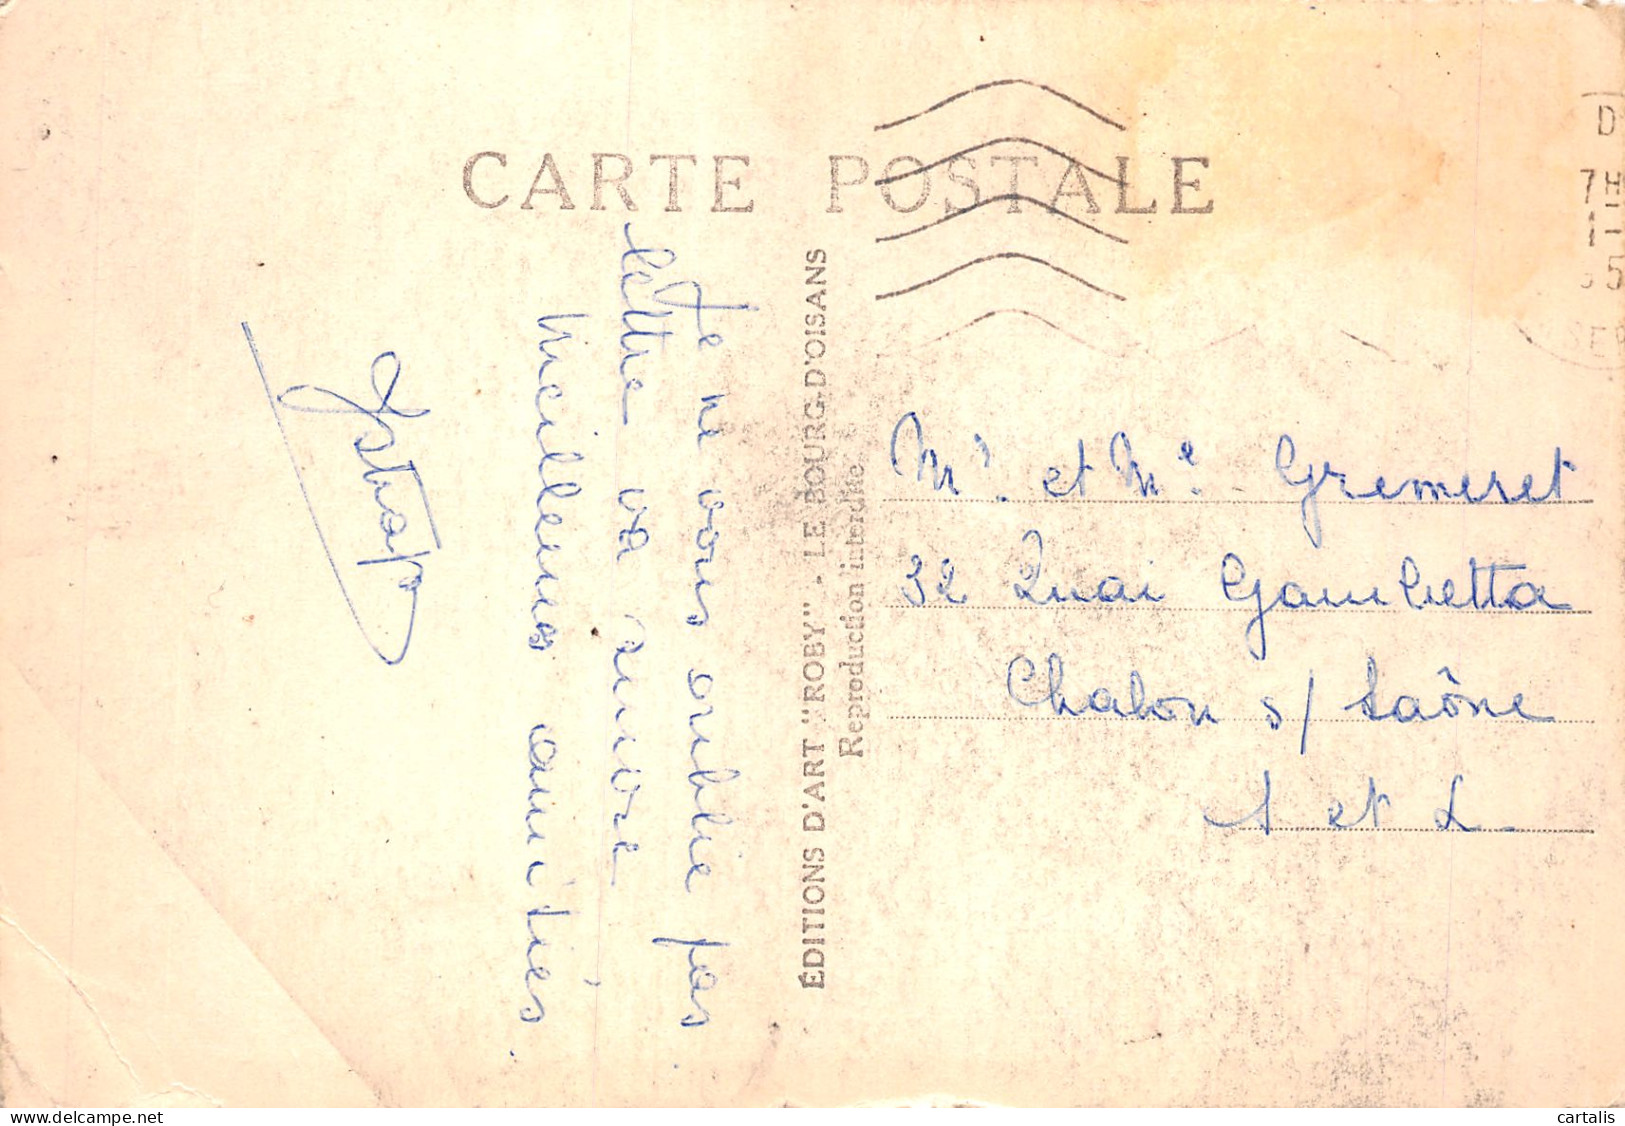 CARTE POSTALE
Je ne vous oublie pas.
lettre va suivre
Meilleures amitiés.
ÉDITIONS D'ART "ROBY" - LE BOURG-D'OISANS
Reproduction interdite
Mr. et Me. Gremeret
32 Quai Gambetta
Chalon s/ Saône
S et L.
D
7H
1-
5
delcampe.net
cartalis